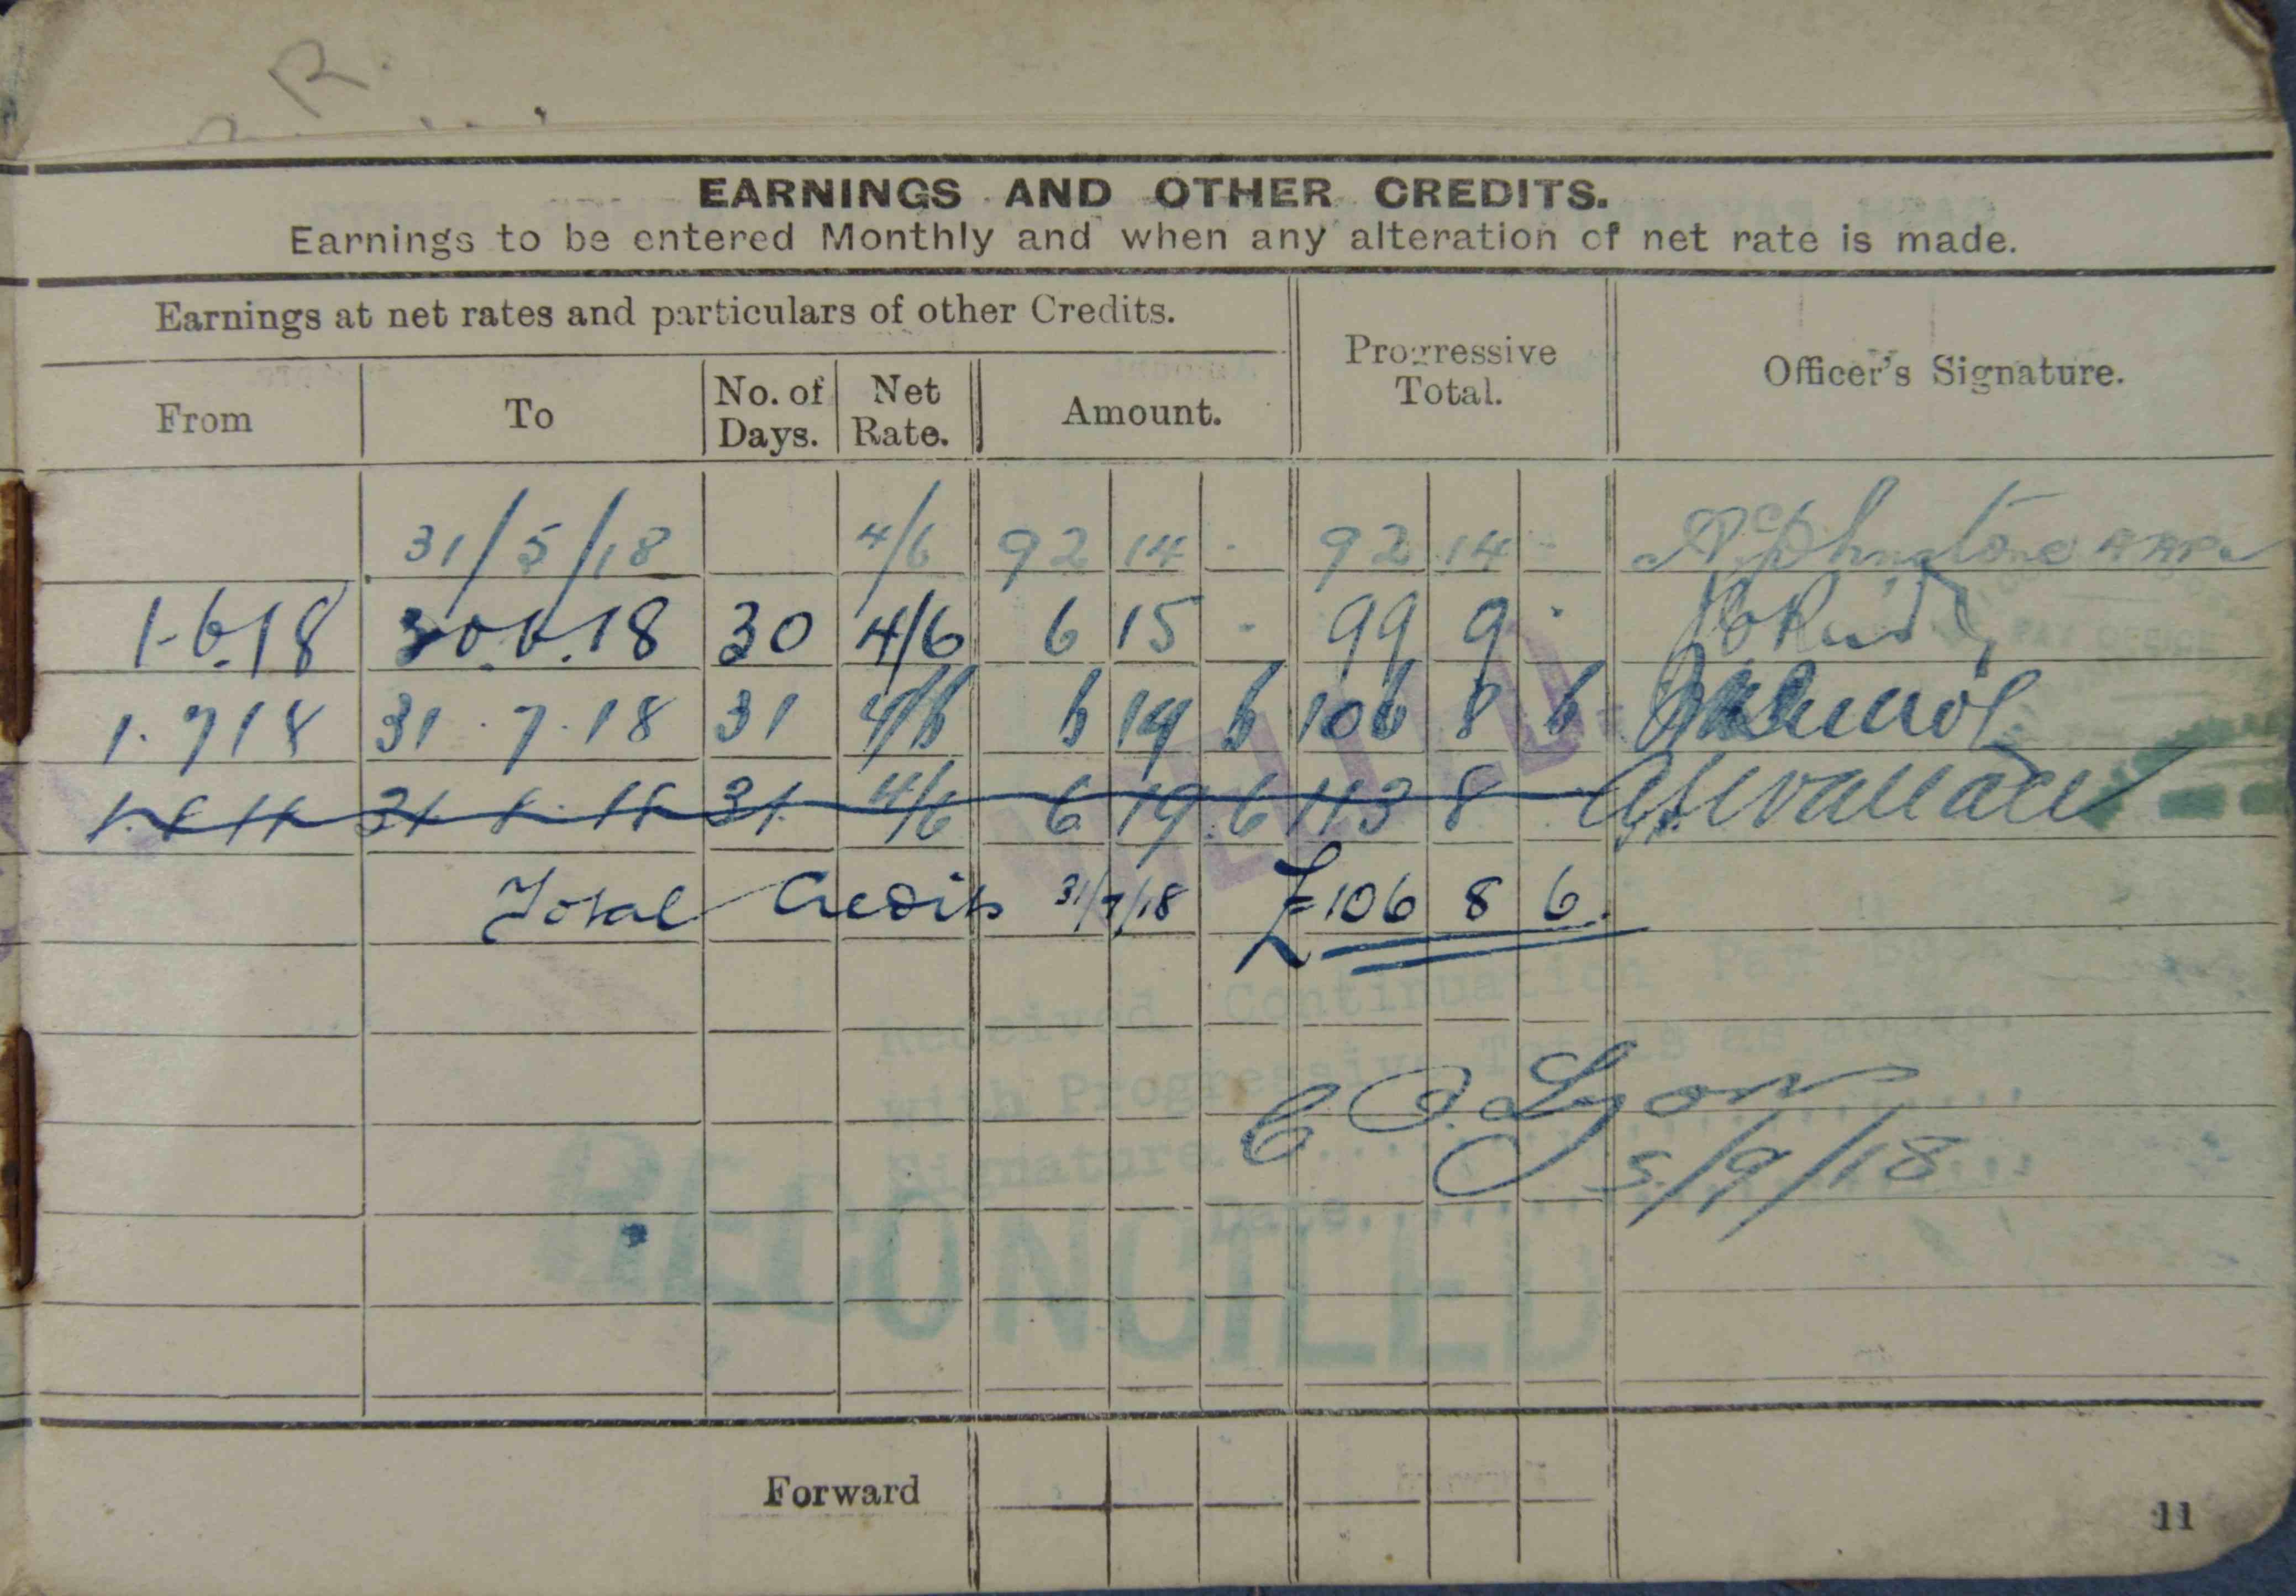 R.
EARNINGS AND OTHER CREDITS.
Earnings to be entered Monthly and when any alteration of net rate is made.
Earnings at net rates and particulars of other Credits.
Progressive Total.
Officer's Signature.
From To No. of Days. Net Rate. Amount.
31/5/18 4/6 92 14 - 92 14 -
1-6.18 30.6.18 30 4/6 6 15 - 99 9 -
1.7 18 31.7.18 31 4/6 6 19 6 106 8 6
1.8 18 31.8.18 31 4/6 6 19 6 113 8 AWallace
Total Credits 31/7/18 £106 8 6.
Received Continuation Pay
with Progressive Totals as above.
C O. Lyons
Signature
5/9/18
Date
RECONCILED
Forward
11